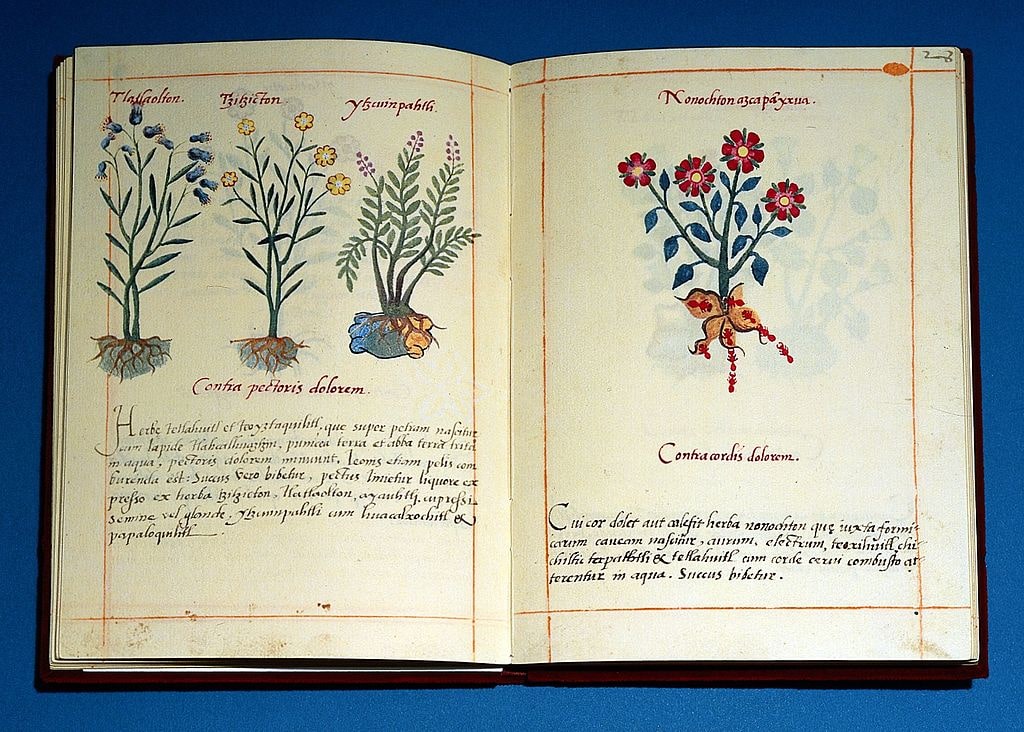 Tlatlaolton. Tzitzicton Ytzcuinpahtli.
Contra pectoris dolorem.
Herbe tetlahuitl et teoyztaquilitl, que super petram nascitur
cum lapide tlahcalhuatzin, punicea terra et alba terra trita
in aqua, pectoris dolorem minuunt. leonis etiam pelis com
burenda est: Succus vero bibetur, pectus linietur liquore ex
presso ex herba tzitzicton, tlatlaolton, ayauhtli, cupressi
semine vel glande. ytzcuinpahtli cum huacalxochitl &
papaloquilitl.
23
Nonochton azcapayxua.
Contra cordis dolorem.
Cui cor dolet aut calefit herba nonochton que iuxta formi-
carum caueam nascitur, aurum, electrum, teoxihuitl, chi-
chiltic tecpahtli & tetlahuitl cum corde cerui combusto at
terentur in aqua. Succus bibetur.